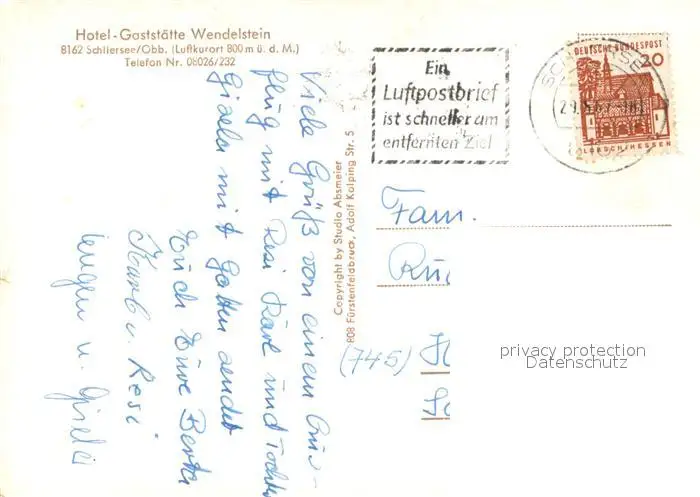 Hotel-Gaststätte Wendelstein
8162 Schliersee/Obb. (Luftkurort 800 m ü. d. M.)
Telefon Nr. 08026/232
Viele Grüß von einem Aus-
flug mit Resi Karl und Tochter
Gisela mit Gatten sendet
Euch Eure Berta
Karl u. Resi
u. Gisela
Copyright by Studio Absmeier
808 Fürstenfeldbruck, Adolf Kolping Str. 5
Ein
Luftpostbrief
ist schneller am
entfernten Ziel
DEUTSCHE BUNDESPOST
20
LORSCH/HESSEN
Fam.
(745)
privacy protection
Datenschutz